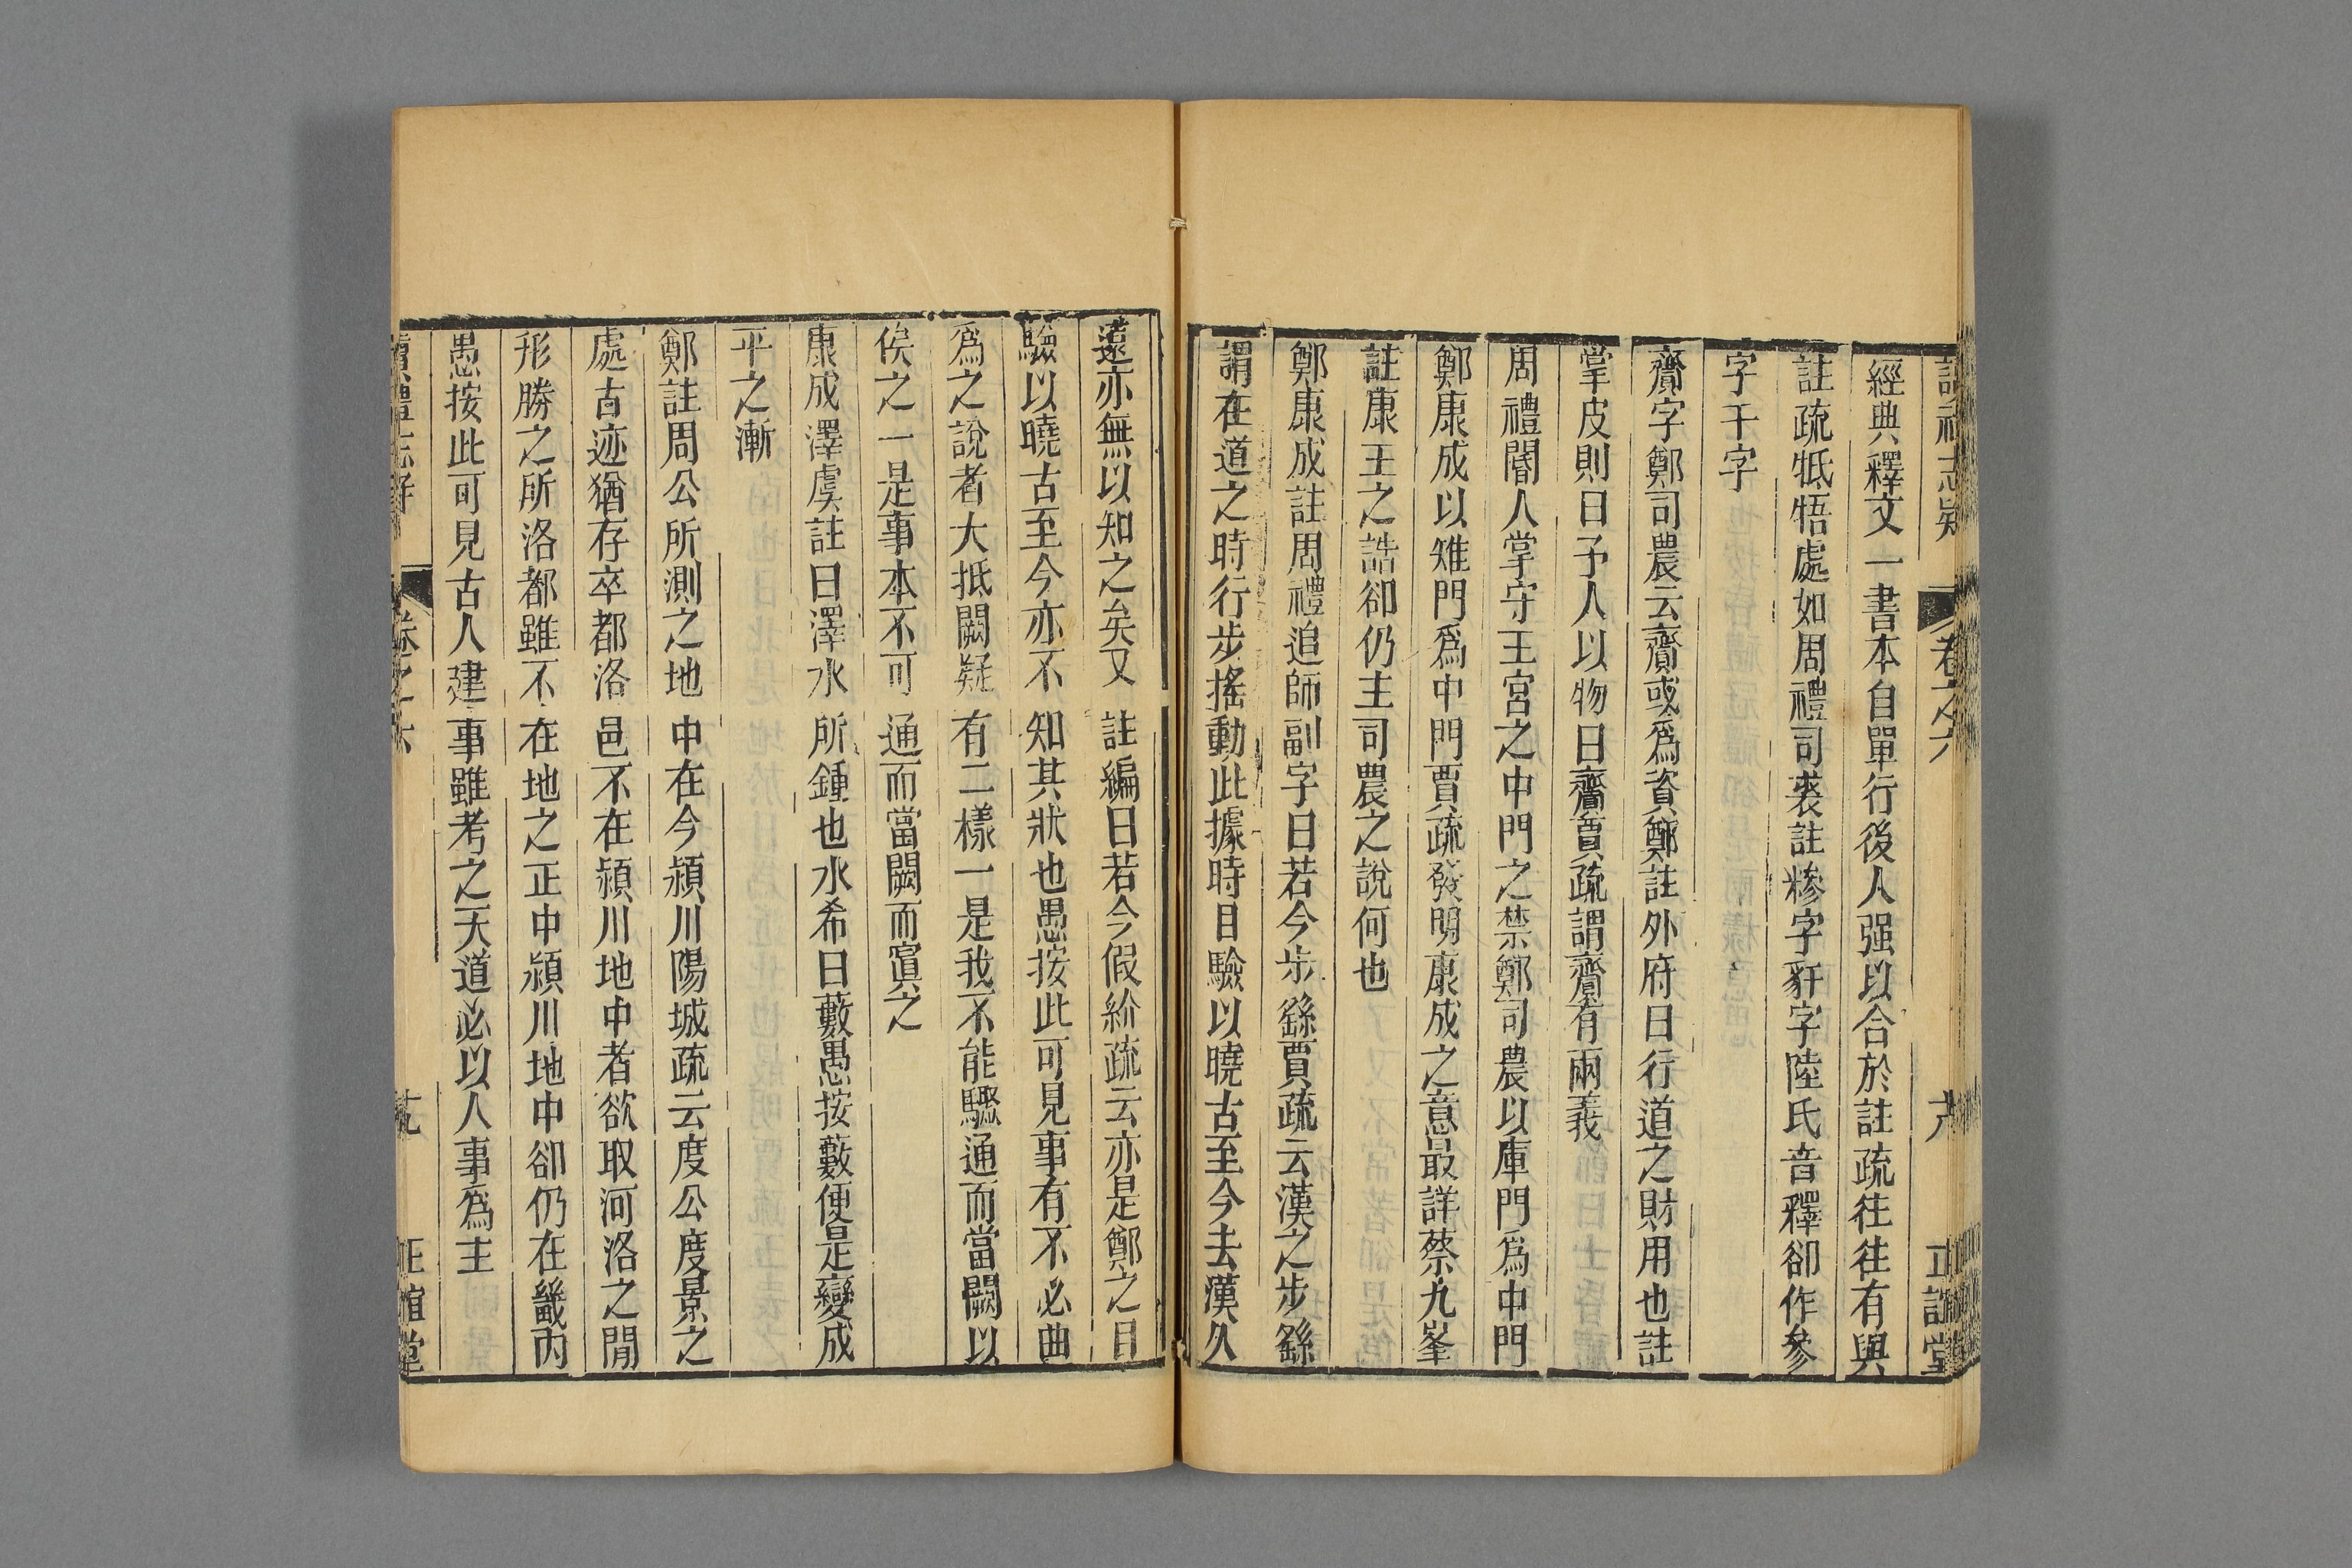 讀禮志疑 卷之六 六 正誼堂
經典釋文一書本自單行後人强以合於註疏往往有與
註疏牴牾處如周禮司裘註糝字豻字陸氏音釋卻作參
字干字
齎字鄭司農云齎或爲資鄭註外府曰行道之財用也註
掌皮則曰予人以物曰齎賈疏謂齎有兩義
周禮閽人掌守王宮之中門之禁鄭司農以庫門爲中門
鄭康成以雉門爲中門賈疏發明康成之意最詳蔡九峯
註康王之誥卻仍主司農之說何也
鄭康成註周禮追師副字曰若今步繇賈疏云漢之步繇
謂在道之時行步搖動此據時目驗以曉古至今去漢久
遠亦無以知之矣又註編曰若今假紒疏云亦是鄭之目
驗以曉古至今亦不知其狀也愚按此可見事有不必曲
爲之說者大抵闕疑有二樣一是我不能驟通而當闕以
俟之一是事本不可通而當闕而窴之
康成澤虞註曰澤水所鍾也水希曰藪愚按藪便是變成
平之漸
鄭註周公所測之地中在今潁川陽城疏云度公度景之
處古迹猶存卒都洛邑不在潁川地中者欲取河洛之間
形勝之所洛都雖不在地之正中潁川地中卻仍在畿內
愚按此可見古人建事雖考之天道必以人事爲主
讀禮志疑 卷之六 正誼堂